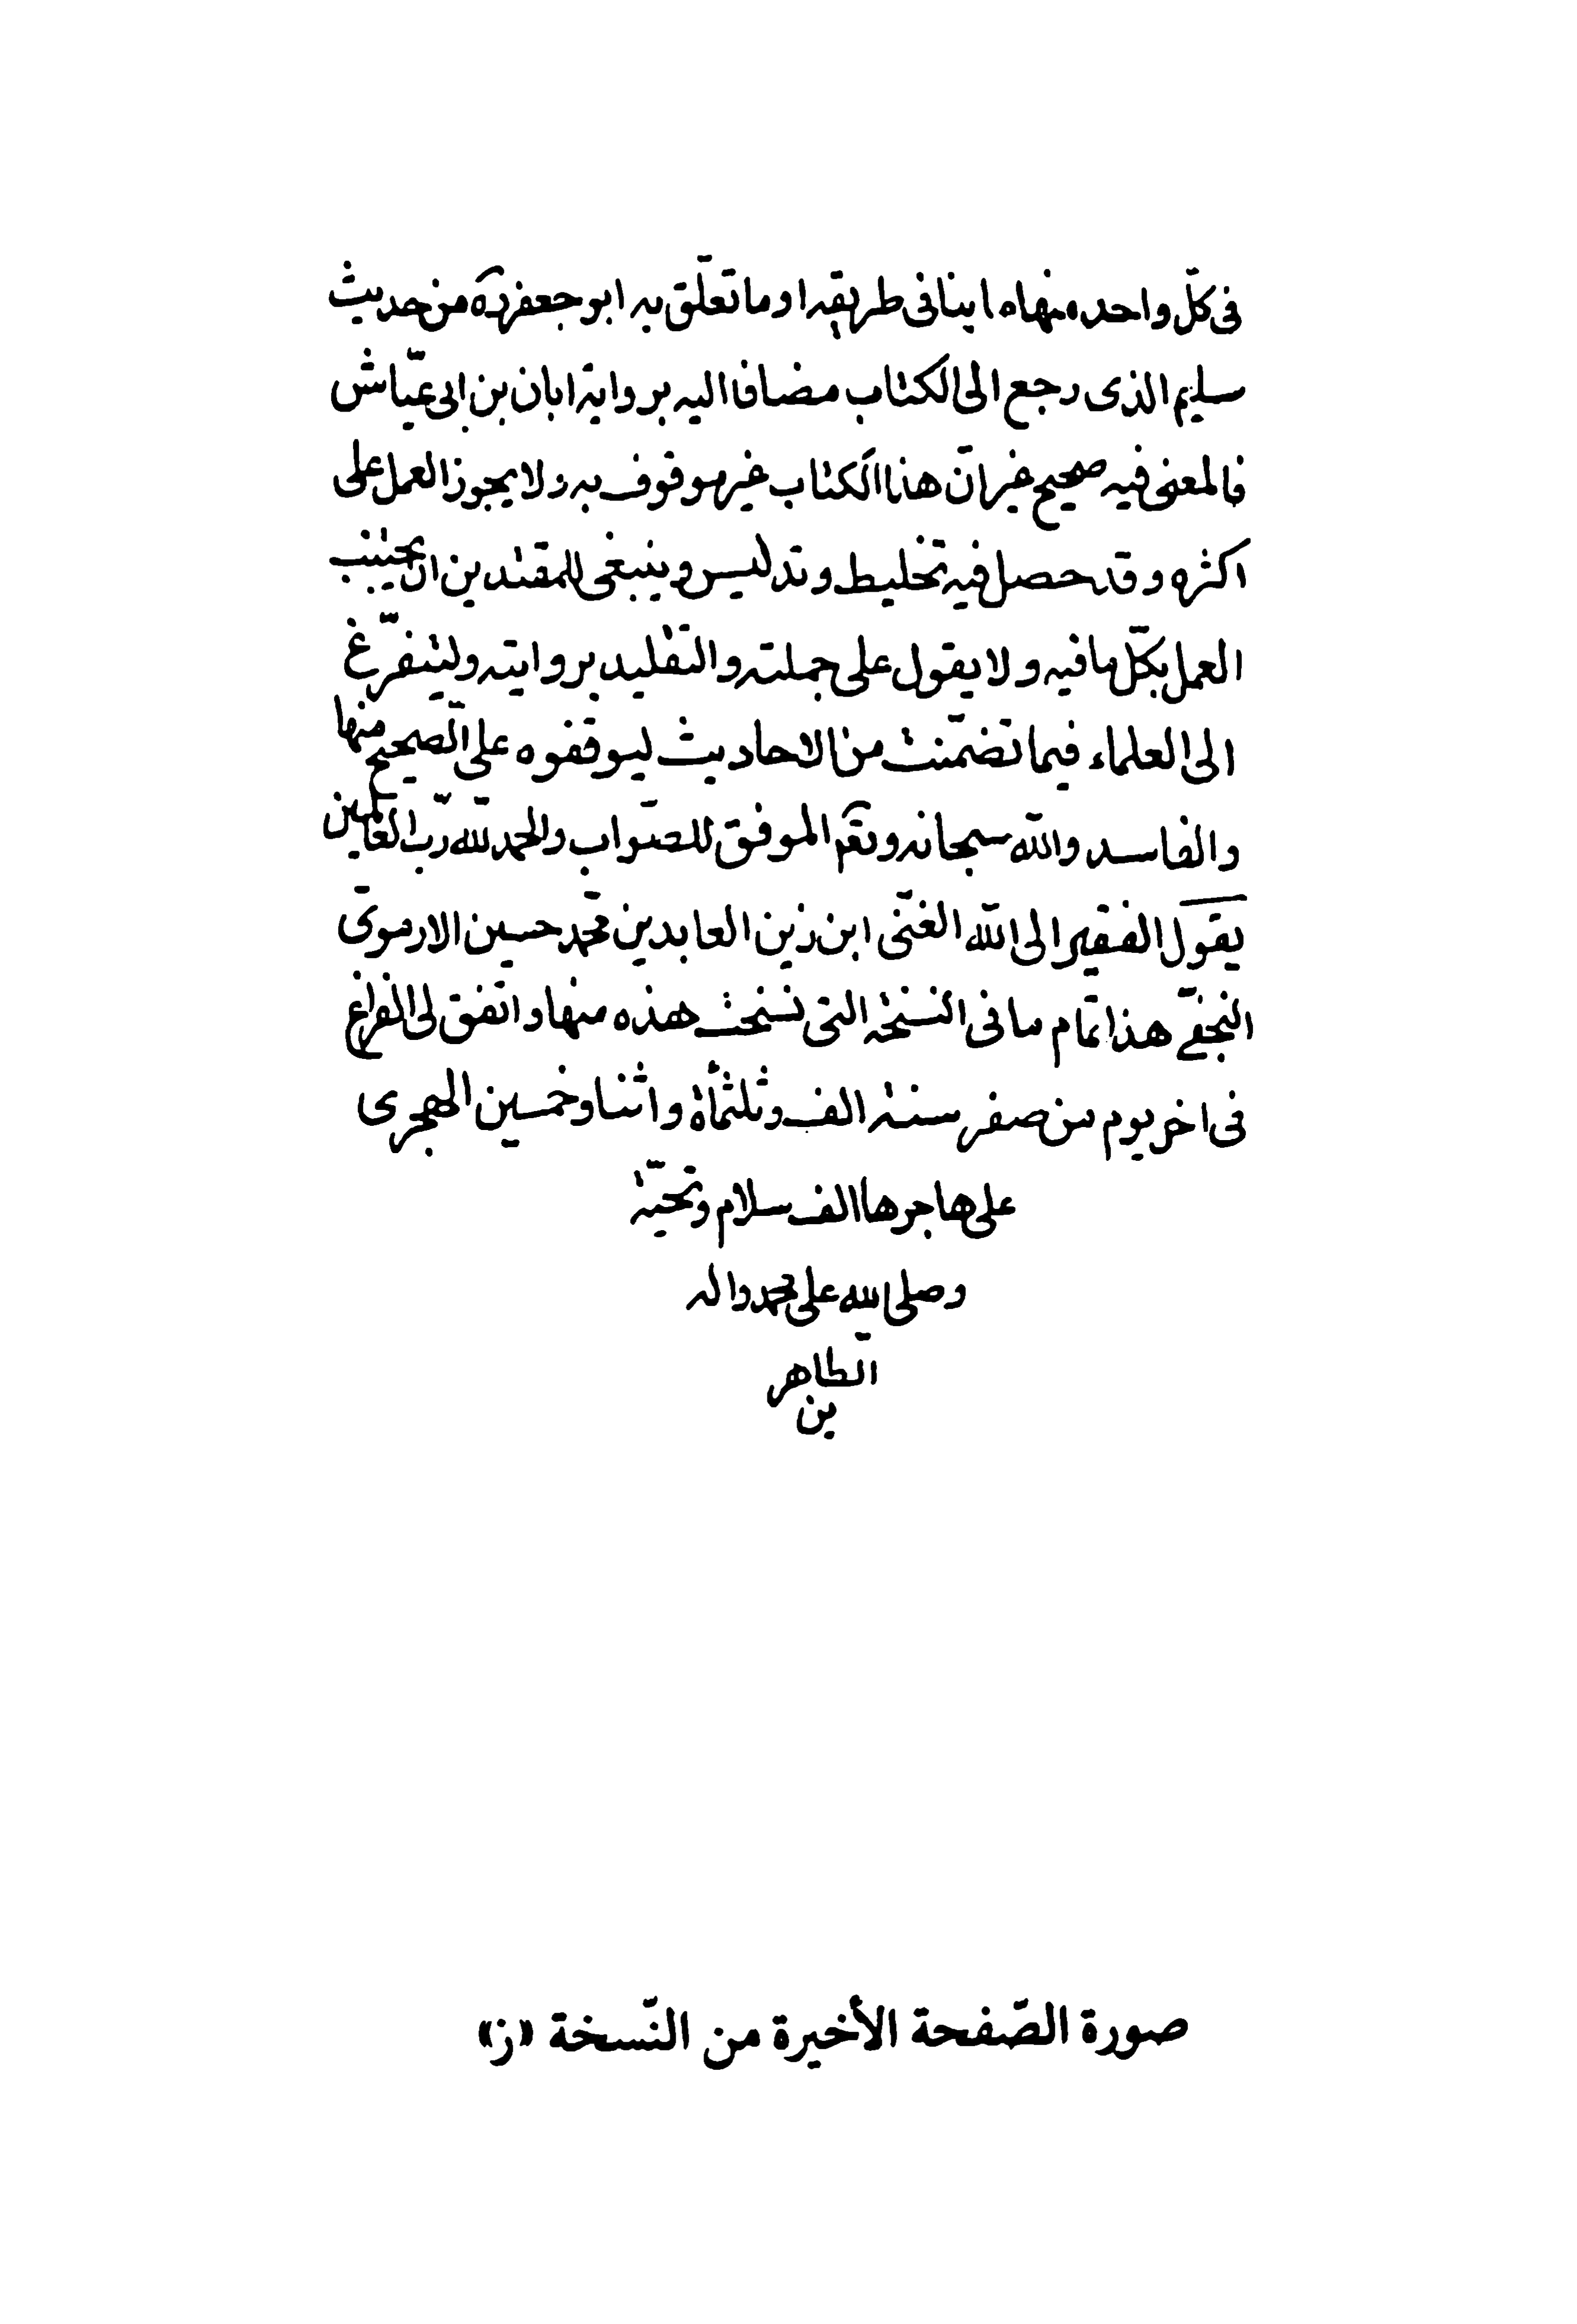 فى كلّ واحد منهاما بينا فى طريقه اوما تعلّق به ابو جعفرره من حديث
سليم الذى رجع الى الكتاب مضافا اليه برواية ابان بن ابى عيّاش
فالمعنى فيه صحيح غيرانّ هذا الكتاب غير موقوف به ولا يجوز العمل على
اكثره وقد حصل فيه تخليط وتدليس وينبغى للمقتدين ان يجتنب
العمل بكلّ ما فيه ولا يقول على جملته والتقليد بروايته وليتفرّغ
الى العلماء فيما تضمّنت من الاحاديث ليوقفوه على الصّحيح منها
والفاسد والله سبحانه وتعم الموفق للصّواب والحمد لله ربّ العالمين
يقول الفقير الى الله الغنّى ابن زين العابدين محمّد حسين الارموىّ
النجفىّ هذا تمام ما فى النسخة التى نسخت هذه منها واتّفق لى الفراغ
فى اخر يوم من صفر سنة الف وثلثمأة واثنا وخمسين الهجرى
على هاجرها الف سلام وتحيّة
وصلى الله على محمد واله
الطّاهر
ين
صورة الصّفحة الأخيرة من النّسخة «ز»